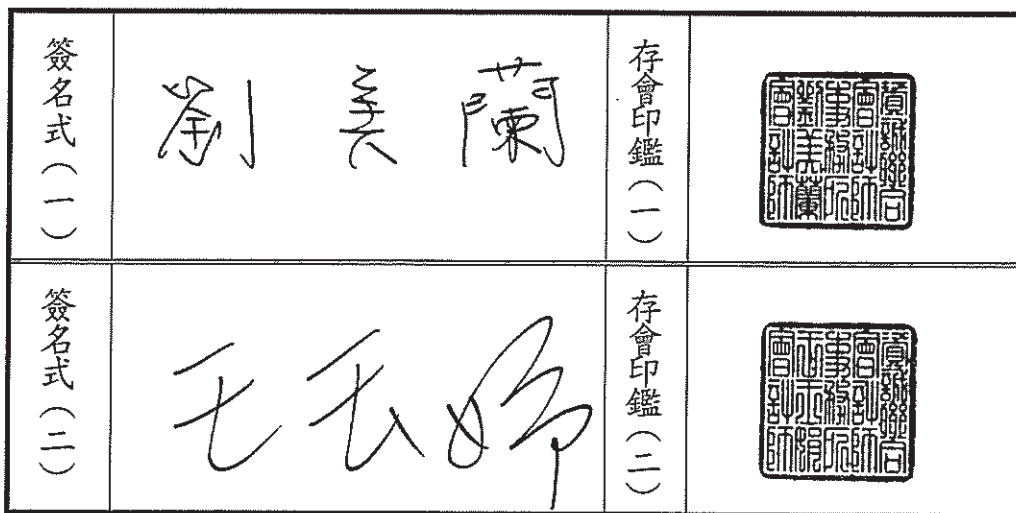 簽名式(一)
劉美蘭
存會印鑑(一)
資誠聯合
會計師
事務所
劉美蘭
會計師
簽名式(二)
王玉娟
存會印鑑(二)
資誠聯合
會計師
事務所
王玉娟
會計師